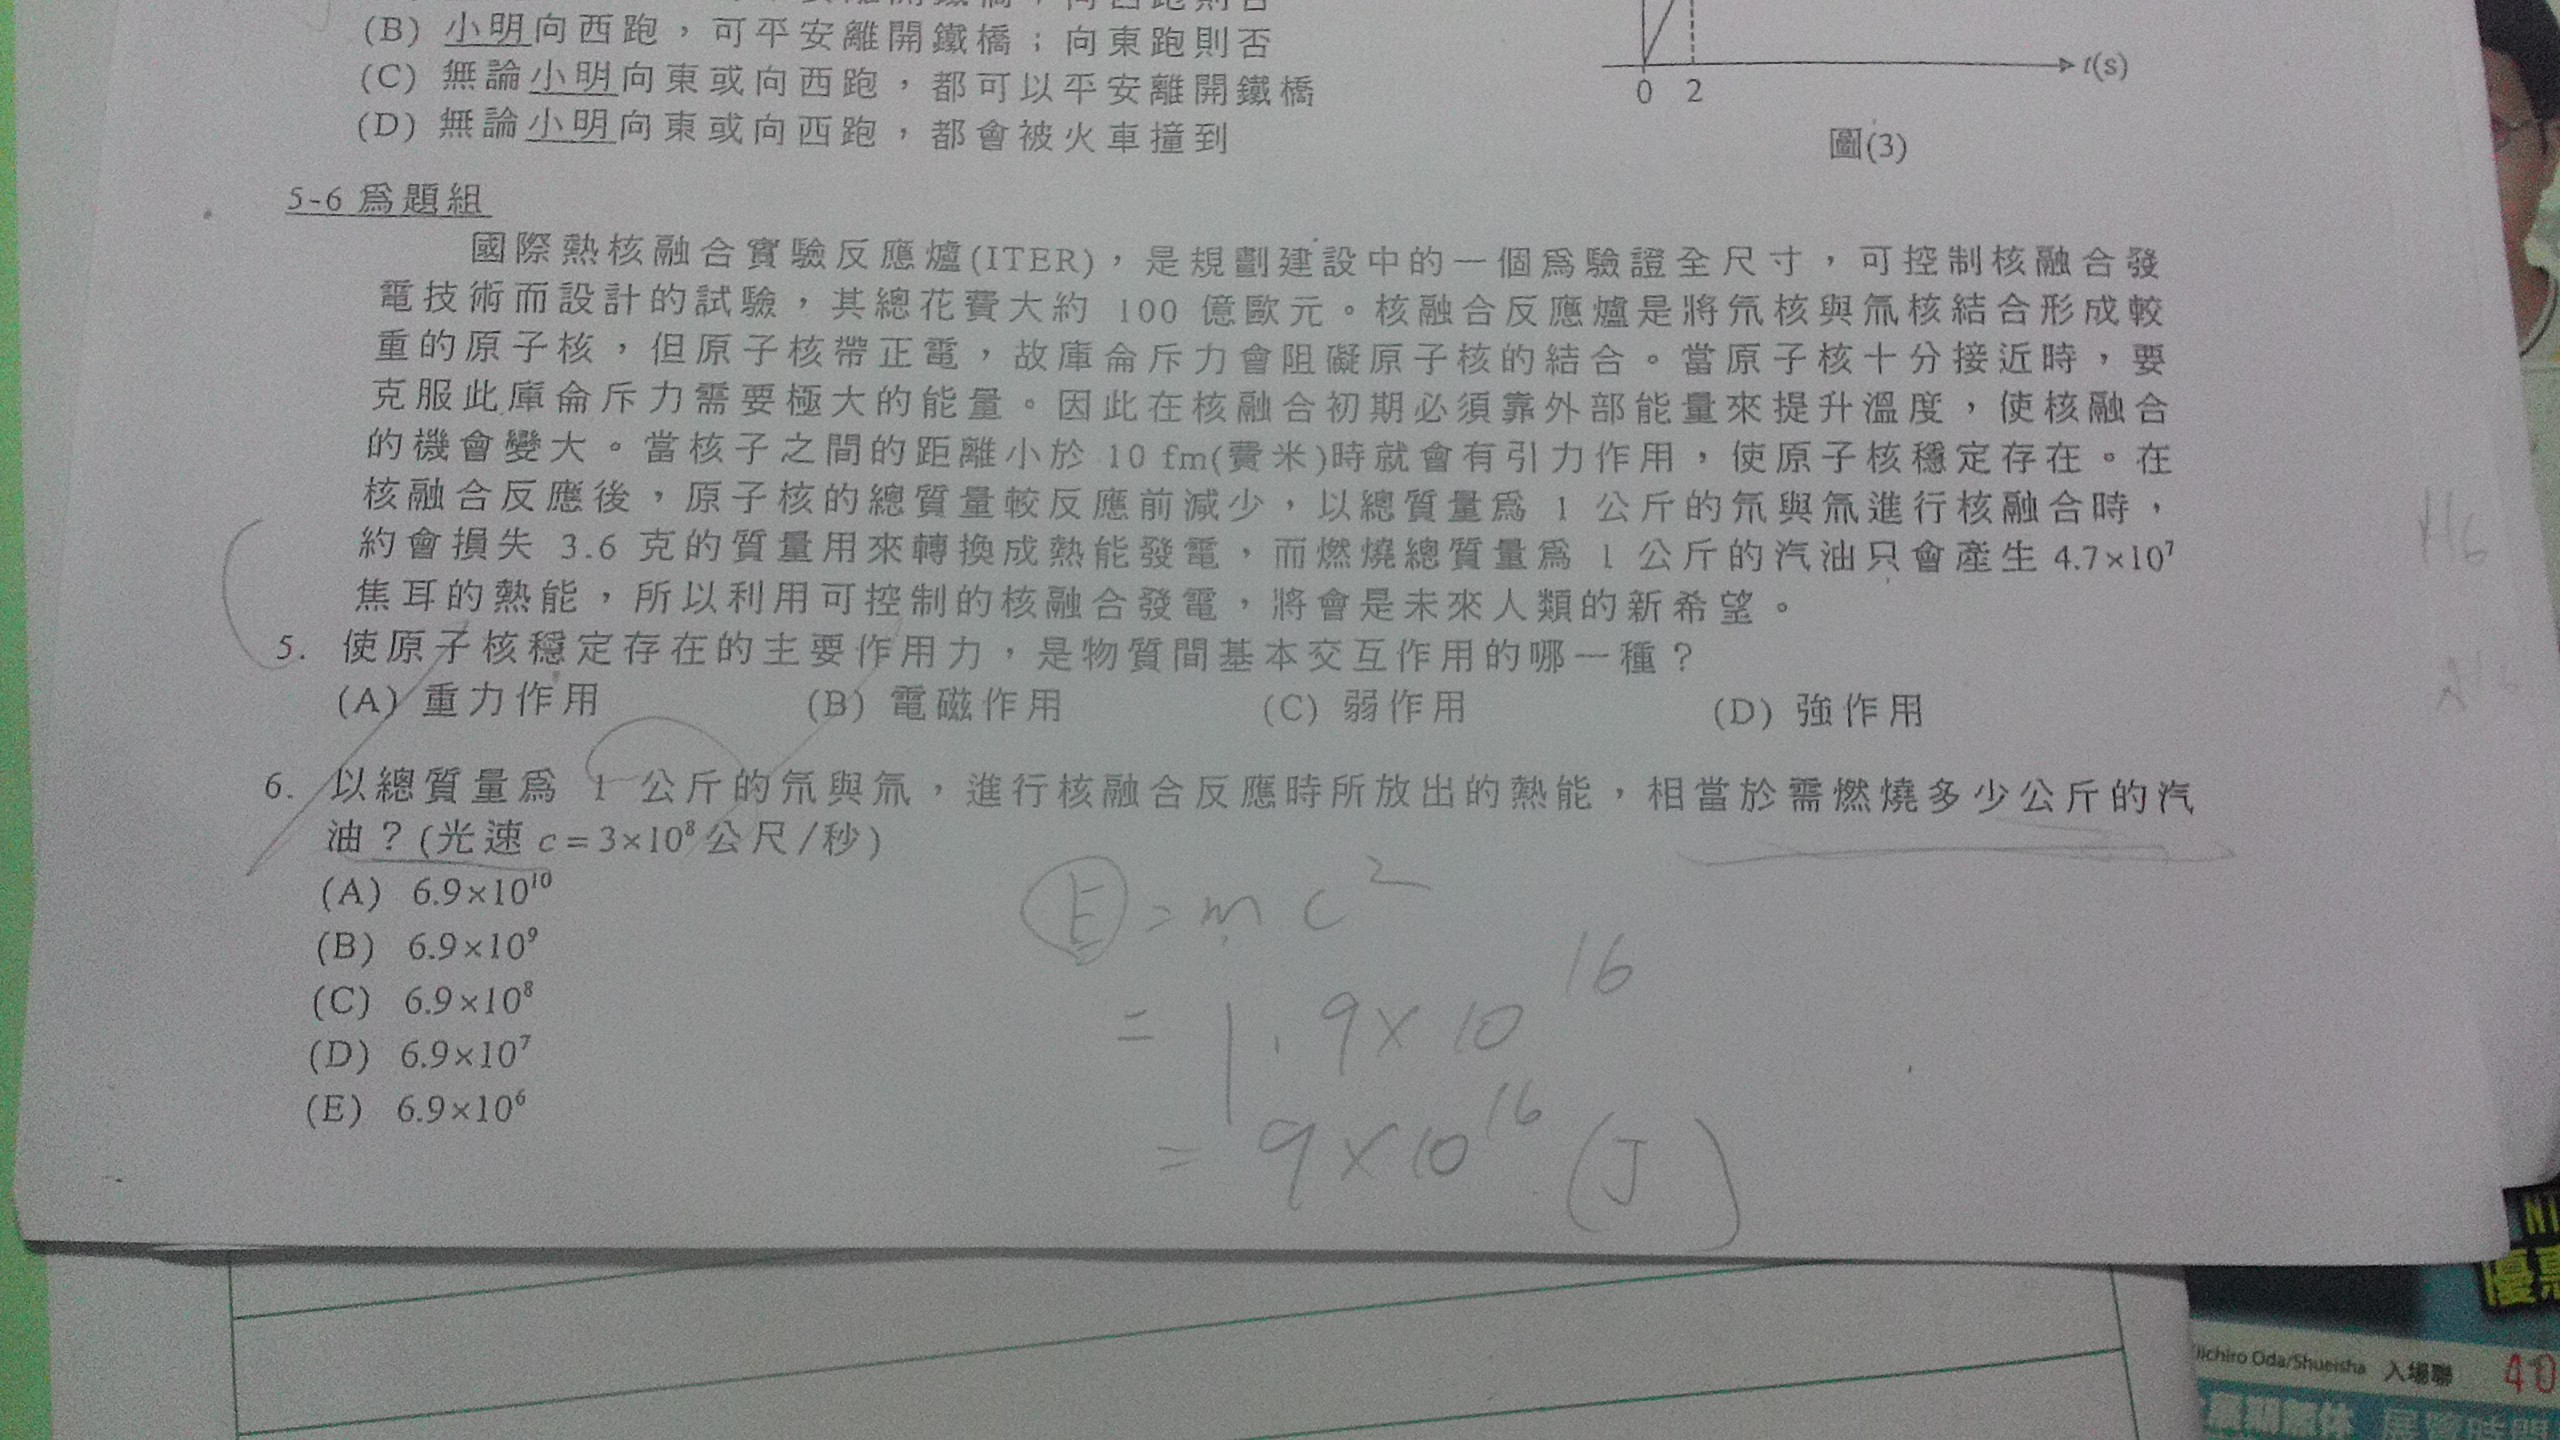 (B) 小明向西跑,可平安離開鐵橋;向東跑則否
(C) 無論小明向東或向西跑,都可以平安離開鐵橋
(D) 無論小明向東或向西跑,都會被火車撞到
t(s)
0 2
圖(3)
5-6 為題組
國際熱核融合實驗反應爐(ITER),是規劃建設中的一個為驗證全尺寸,可控制核融合發
電技術而設計的試驗,其總花費大約 100 億歐元。核融合反應爐是將氘核與氚核結合形成較
重的原子核,但原子核帶正電,故庫侖斥力會阻礙原子核的結合。當原子核十分接近時,要
克服此庫侖斥力需要極大的能量。因此在核融合初期必須靠外部能量來提升溫度,使核融合
的機會變大。當核子之間的距離小於 10 fm(費米)時就會有引力作用,使原子核穩定存在。在
核融合反應後,原子核的總質量較反應前減少,以總質量為 1 公斤的氘與氚進行核融合時,
約會損失 3.6 克的質量用來轉換成熱能發電,而燃燒總質量為 1 公斤的汽油只會產生 4.7×10⁷
焦耳的熱能,所以利用可控制的核融合發電,將會是未來人類的新希望。
5. 使原子核穩定存在的主要作用力,是物質間基本交互作用的哪一種?
(A) 重力作用 (B) 電磁作用 (C) 弱作用 (D) 強作用
6. 以總質量為 1 公斤的氘與氚,進行核融合反應時所放出的熱能,相當於需燃燒多少公斤的汽
油?(光速 c=3×10⁸ 公尺/秒)
(A) 6.9×10¹⁰
(B) 6.9×10⁹
(C) 6.9×10⁸
(D) 6.9×10⁷
(E) 6.9×10⁶
E = mc²
= 1.9×10¹⁶
= 9×10¹⁶ (J)
優惠
iichiro Oda/Shueisha 入場聯 40